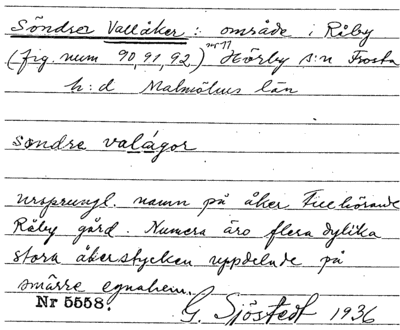 Söndrer Vallåker: område i Råby
(fig. num 90, 91, 92) nr 11 Hörby s:n Frosta
h:d Malmöhus län
söndre valågor
ursprungl. namn på åker tillhörande
Råby gård. Numera äro flera dylika
stora åkerstycken uppdelade på
smärre egnahem.
Nr 5558.
G. Sjöstedt 1936